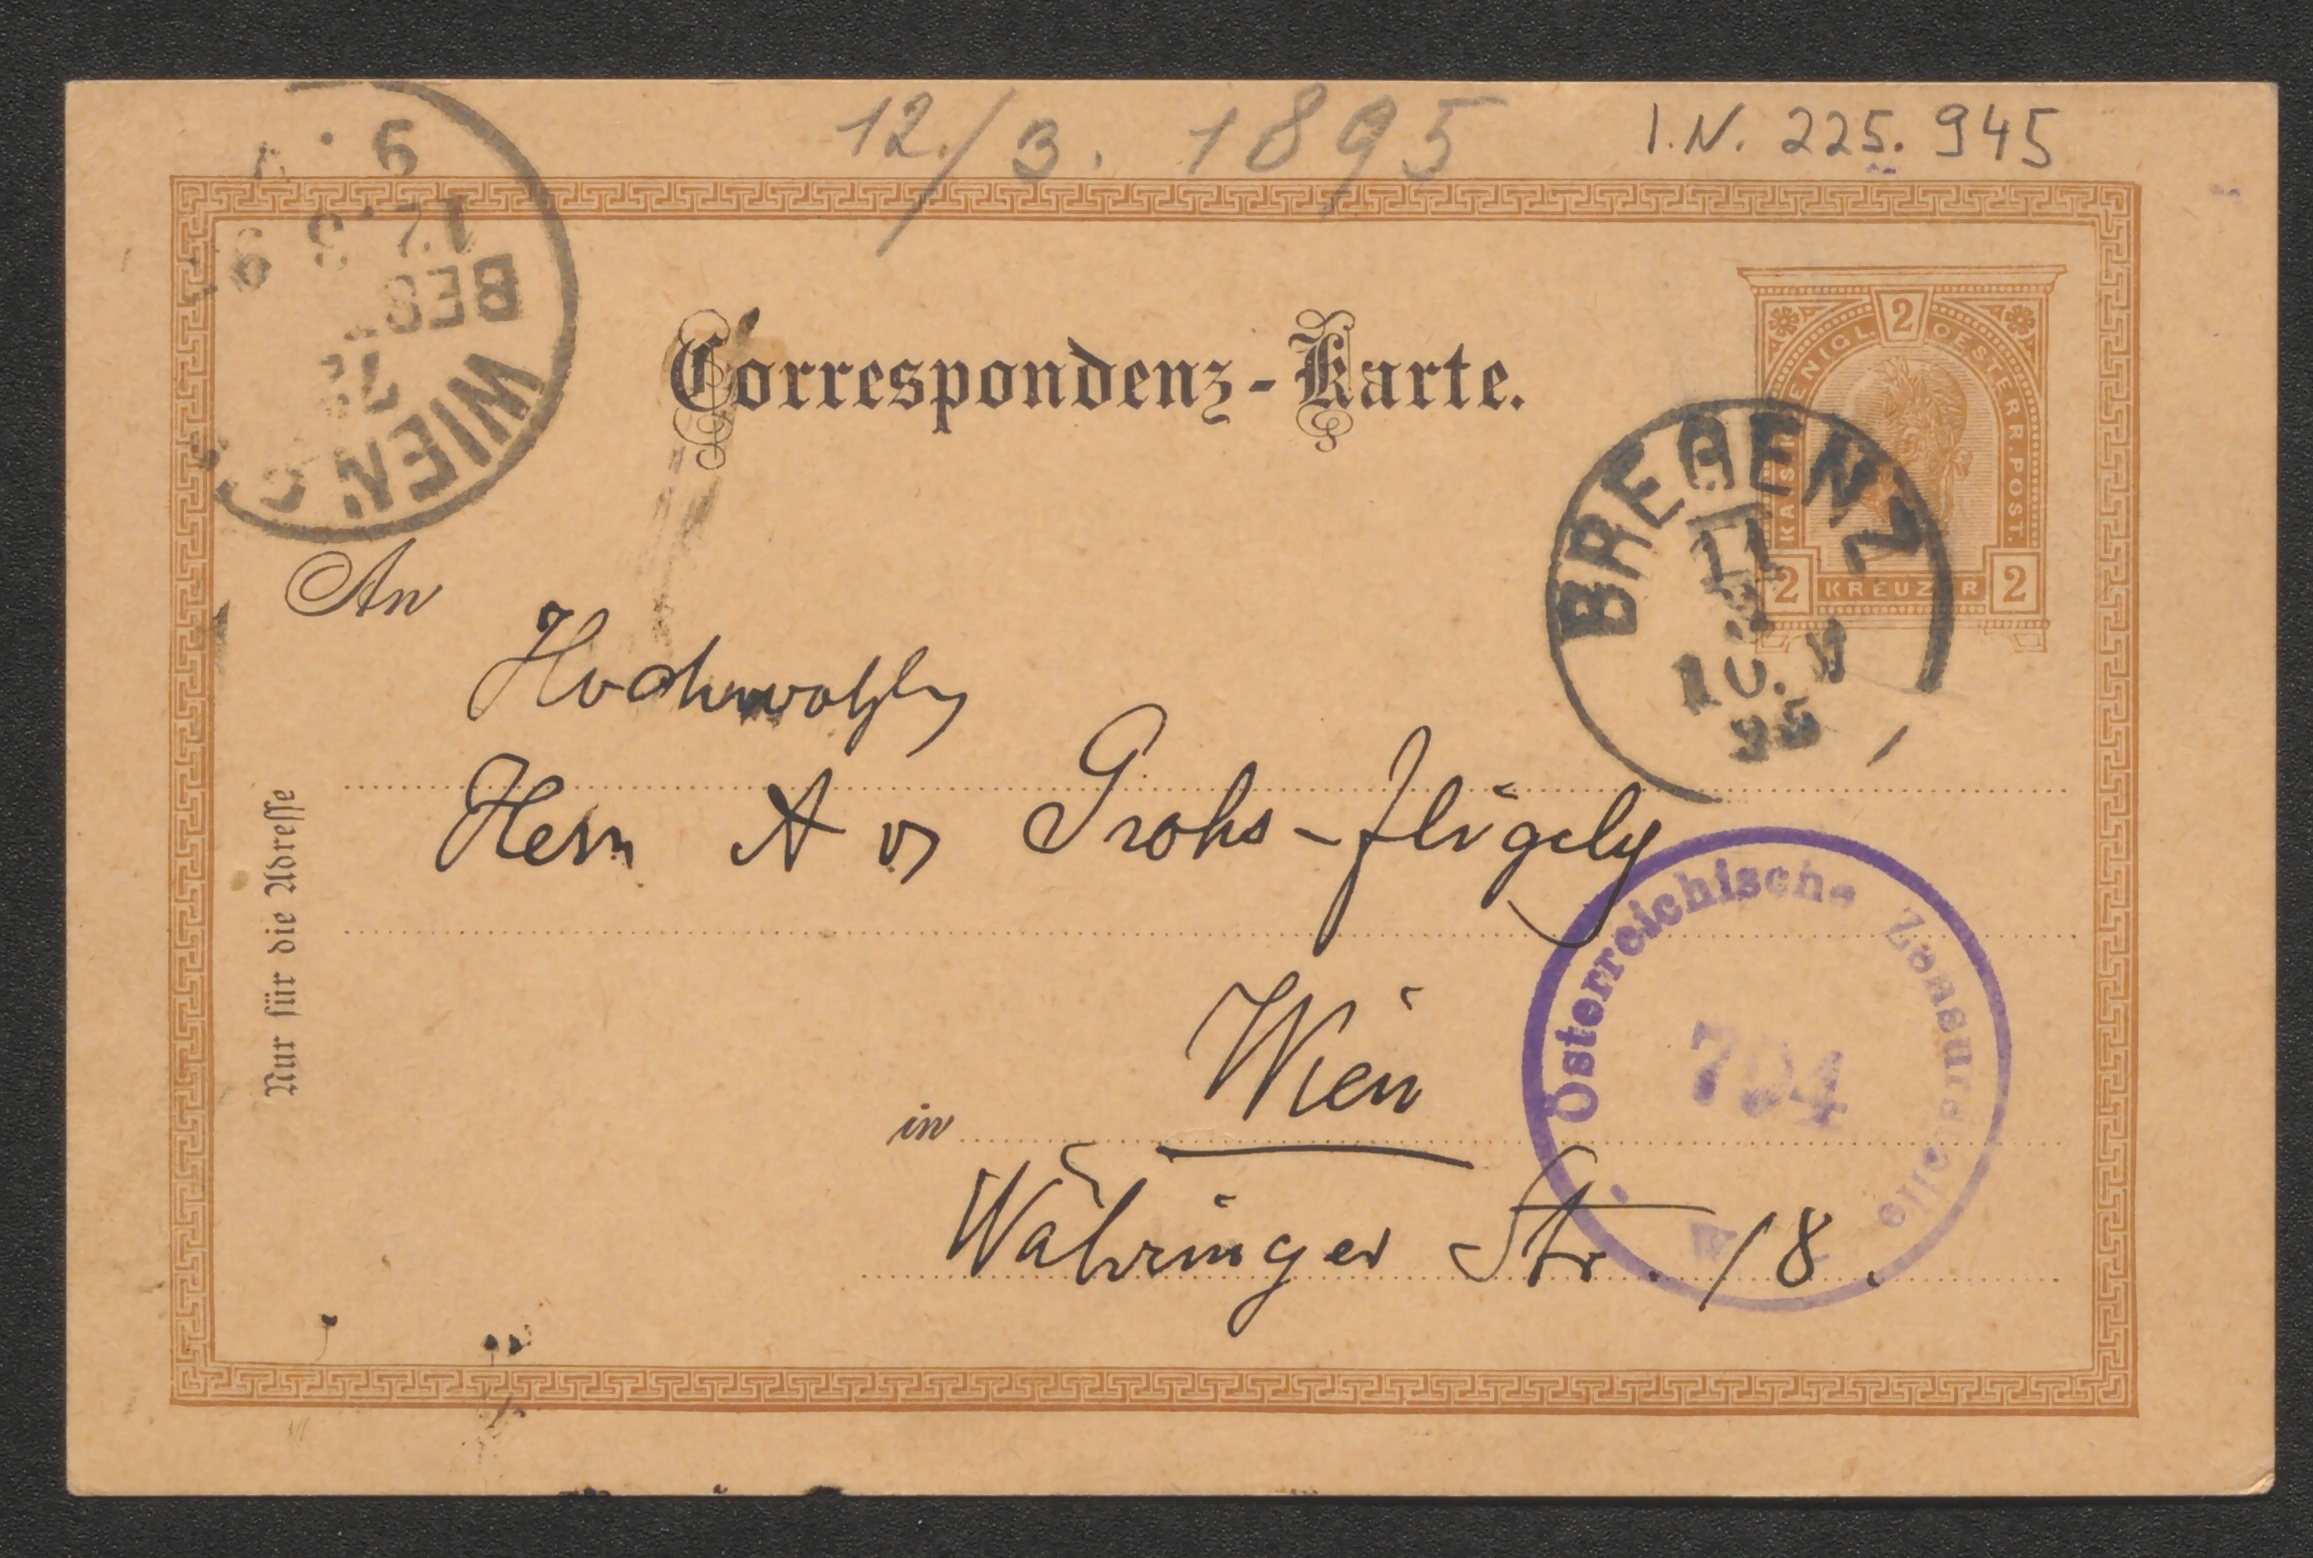 12./3. 1895
I.N. 225.945
9.
12.3.9
BEST
WIEN
Correspondenz-Karte.
2
KAIS KOENIGL OESTERR. POST.
2 KREUZER 2
BREGENZ
11
3
10.V
95
An
Hochwohlg
Herrn A v Grohs-Fligely
Österreichische Zensurstelle
794
in Wien
Währinger Str. 18.
Nur für die Adresse